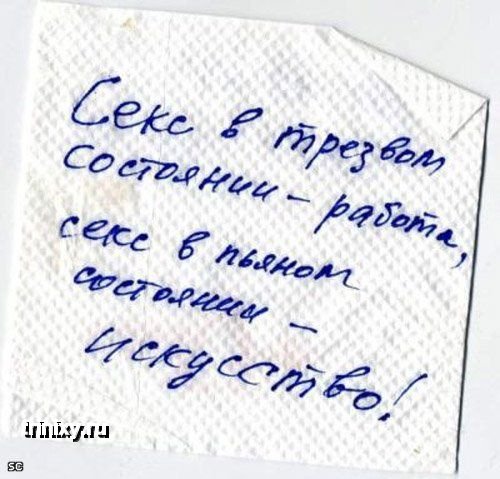 Секс в трезвом
состоянии - работа,
секс в пьяном
состоянии -
искусство!
trinixy.ru
SC